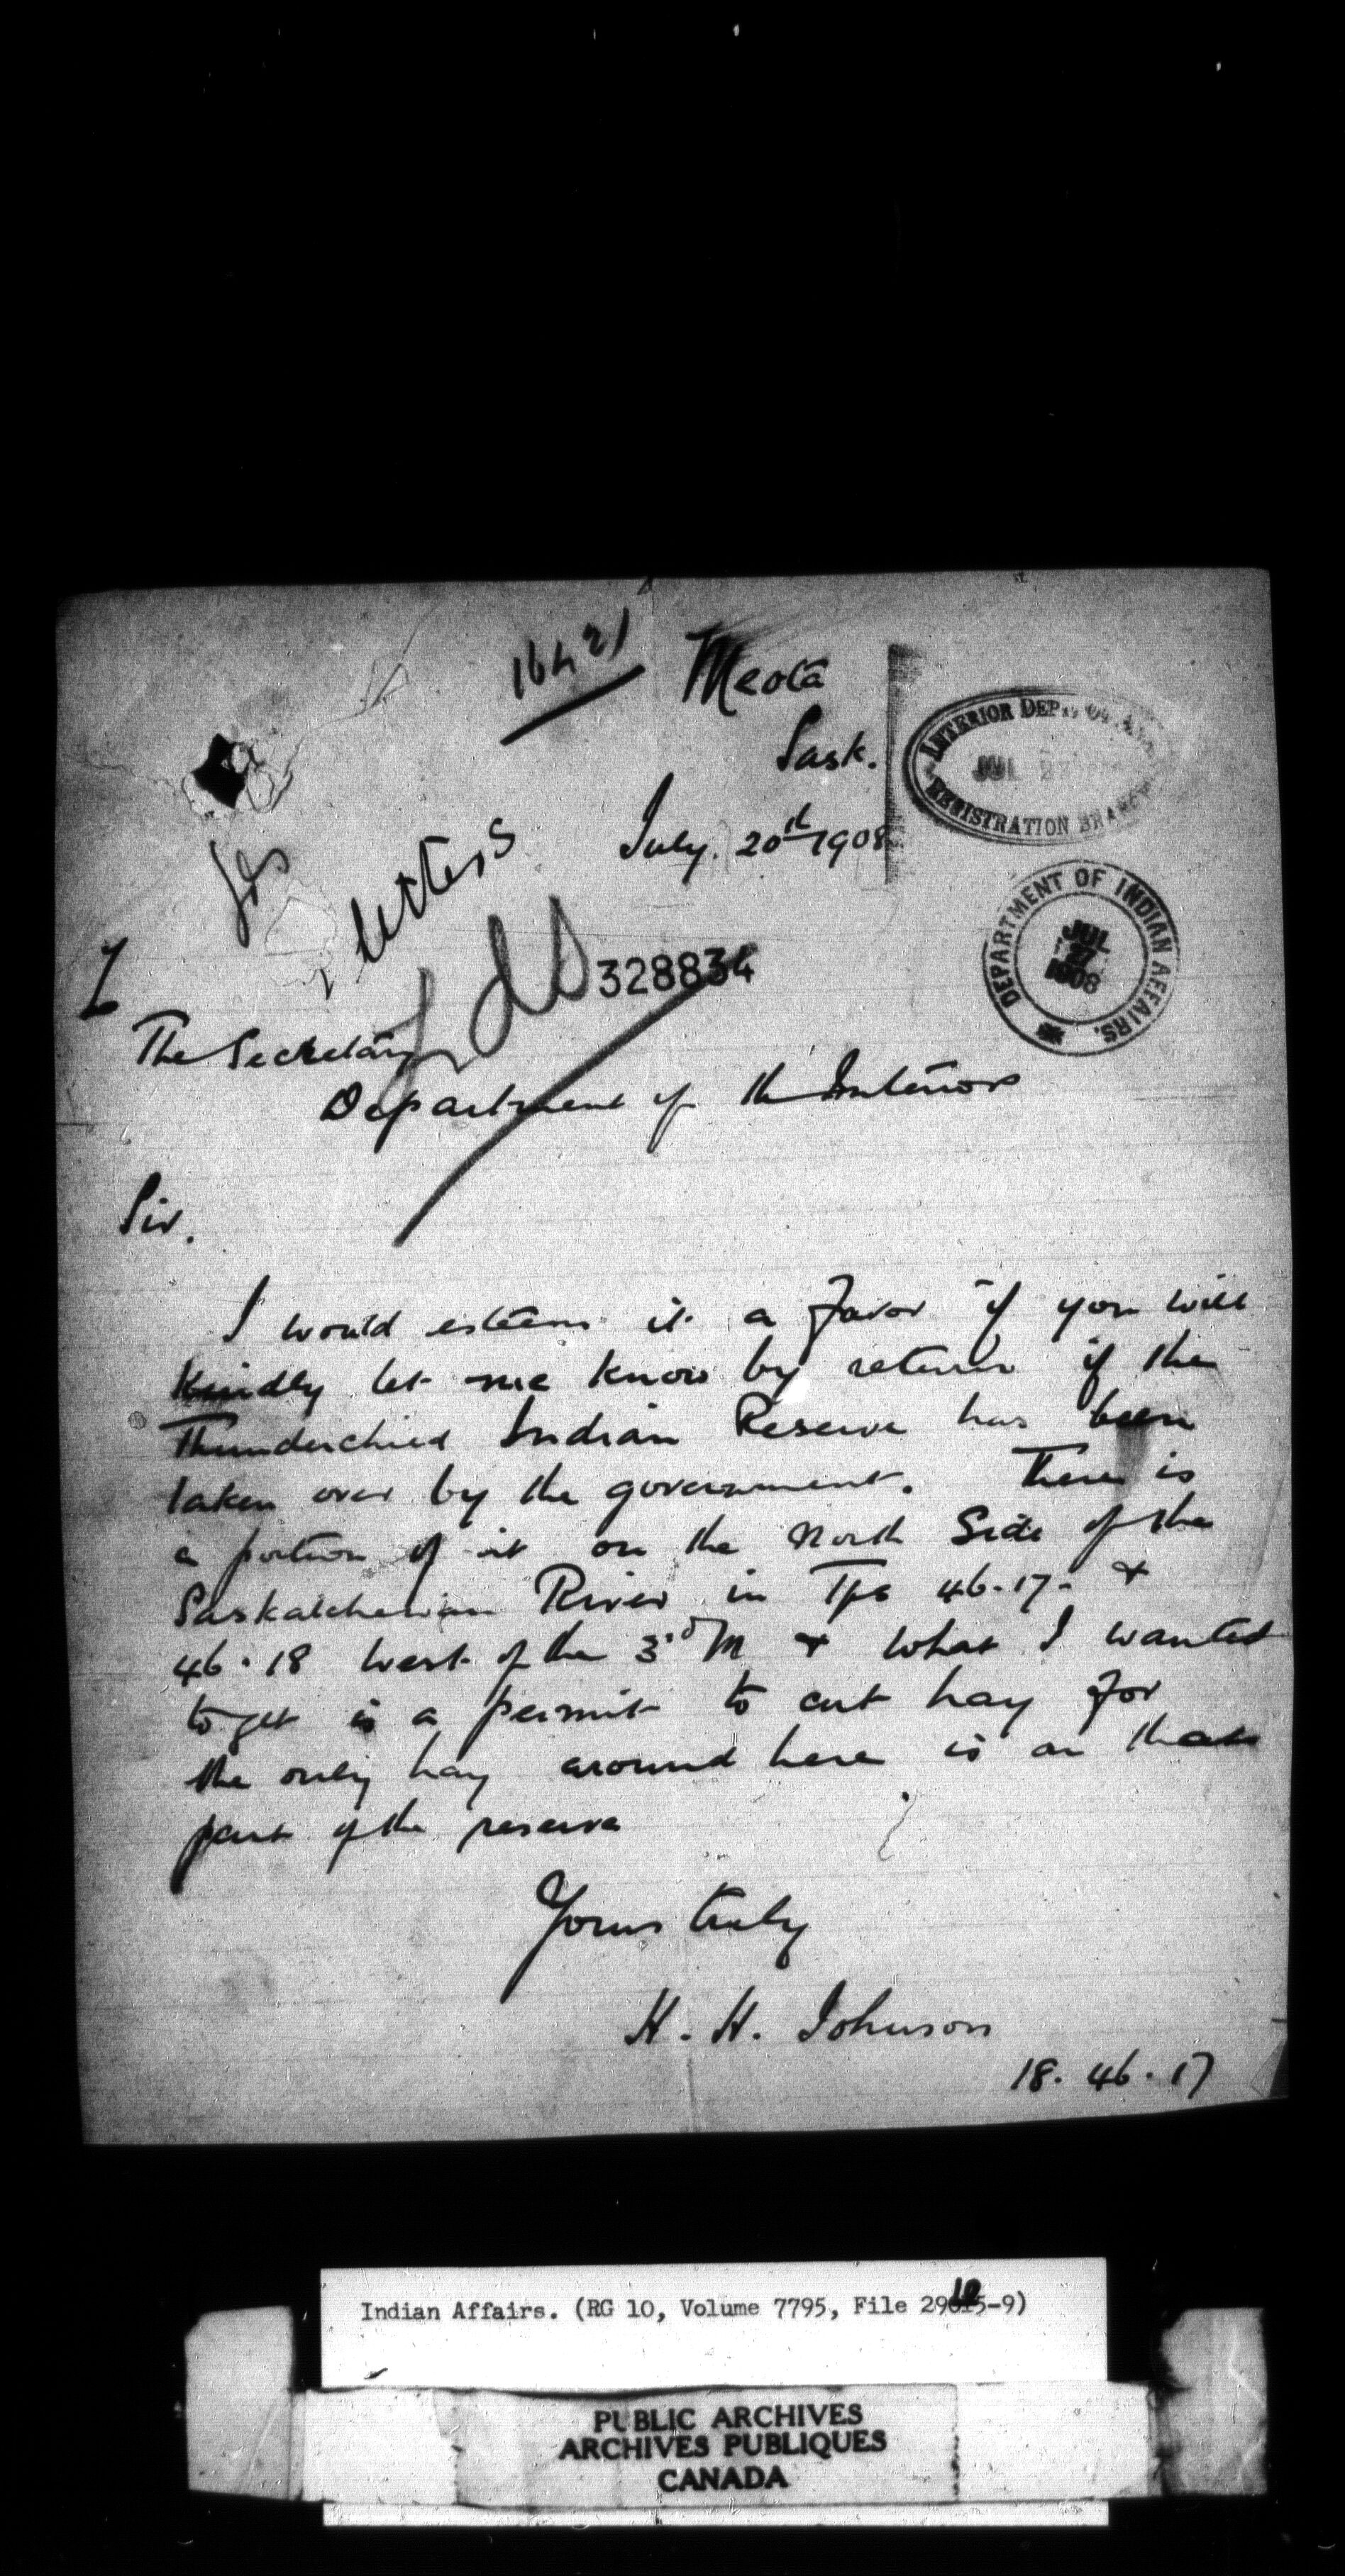 16421
Meota
Sask.
July. 20th 1908
INTERIOR DEPT.
JUL 27
REGISTRATION BRANCH
DEPARTMENT OF INDIAN AFFAIRS.
JUL
27
1908
letters
328834
The Secretary
Department of the Interior
Sir.
I would esteem it a favor if you will
kindly let me know by return if the
Thunderchild Indian Reserve has been
taken over by the government. There is
a portion of it on the North Side of the
Saskatchewan River in Tps 46.17. &
46.18 West of the 3rd M & what I wanted
to get is a permit to cut hay for
the only hay around here is on that
part of the reserve
Yours truly
H. H. Johnson
18. 46. 17
Indian Affairs. (RG 10, Volume 7795, File 29105-9)
PUBLIC ARCHIVES
ARCHIVES PUBLIQUES
CANADA